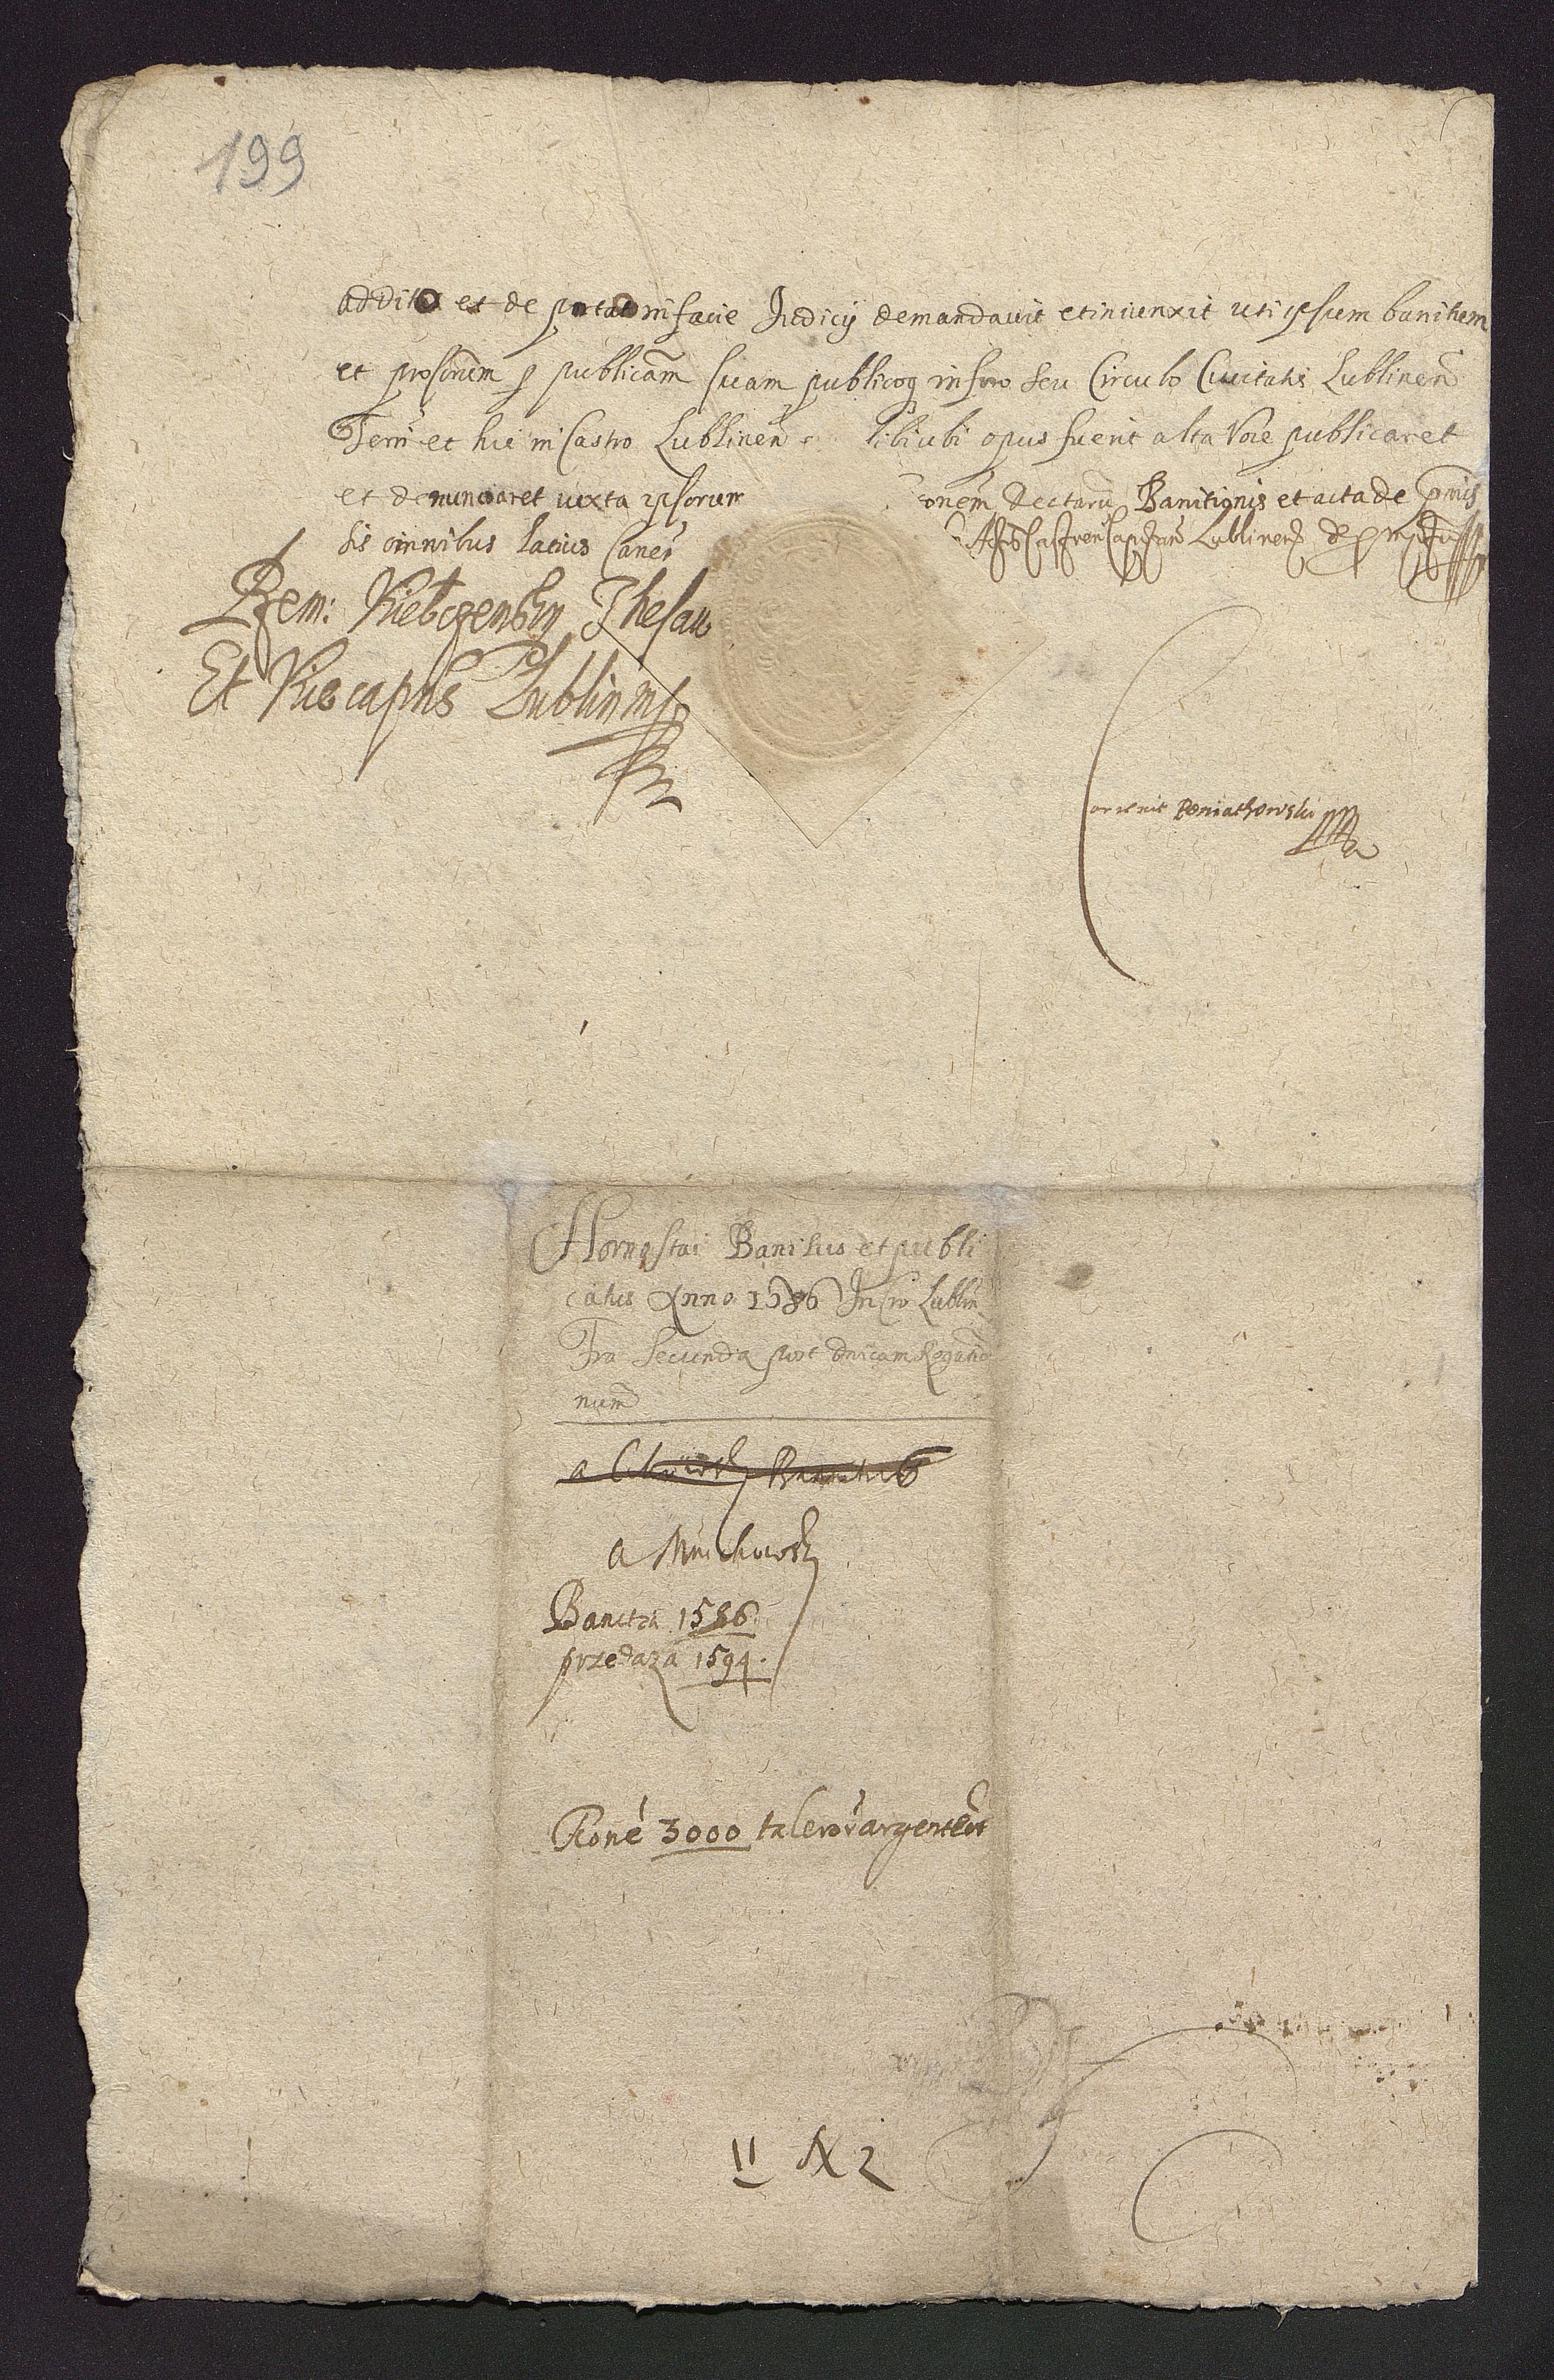 199
addito et de portato in facie Iudicij demandavit et iniunxit uti ipsum banitum
et prosonem p publicam suam publicoq in foro seu Circulo Civitatis Lublinen
Tem et hic in Castro Lublinen libiubi opus fuerit alta Voce publicaret
et denunciaret iuxta ipsorum onem dectaru Banitionis et acta de pmis
sis omnibus latius Canen Lublinen
Rem: Thesau
Et Vicecaptus Lublinens
Correxit Poniathowski
Hornostai Banitus et publi
catus Anno 1586 In Cro Lublin
Fra Secunda post dnicam Rogatio
num
Banitia 1586
przedaza 1594.
Rone 3000 taleror argenteor
11 2